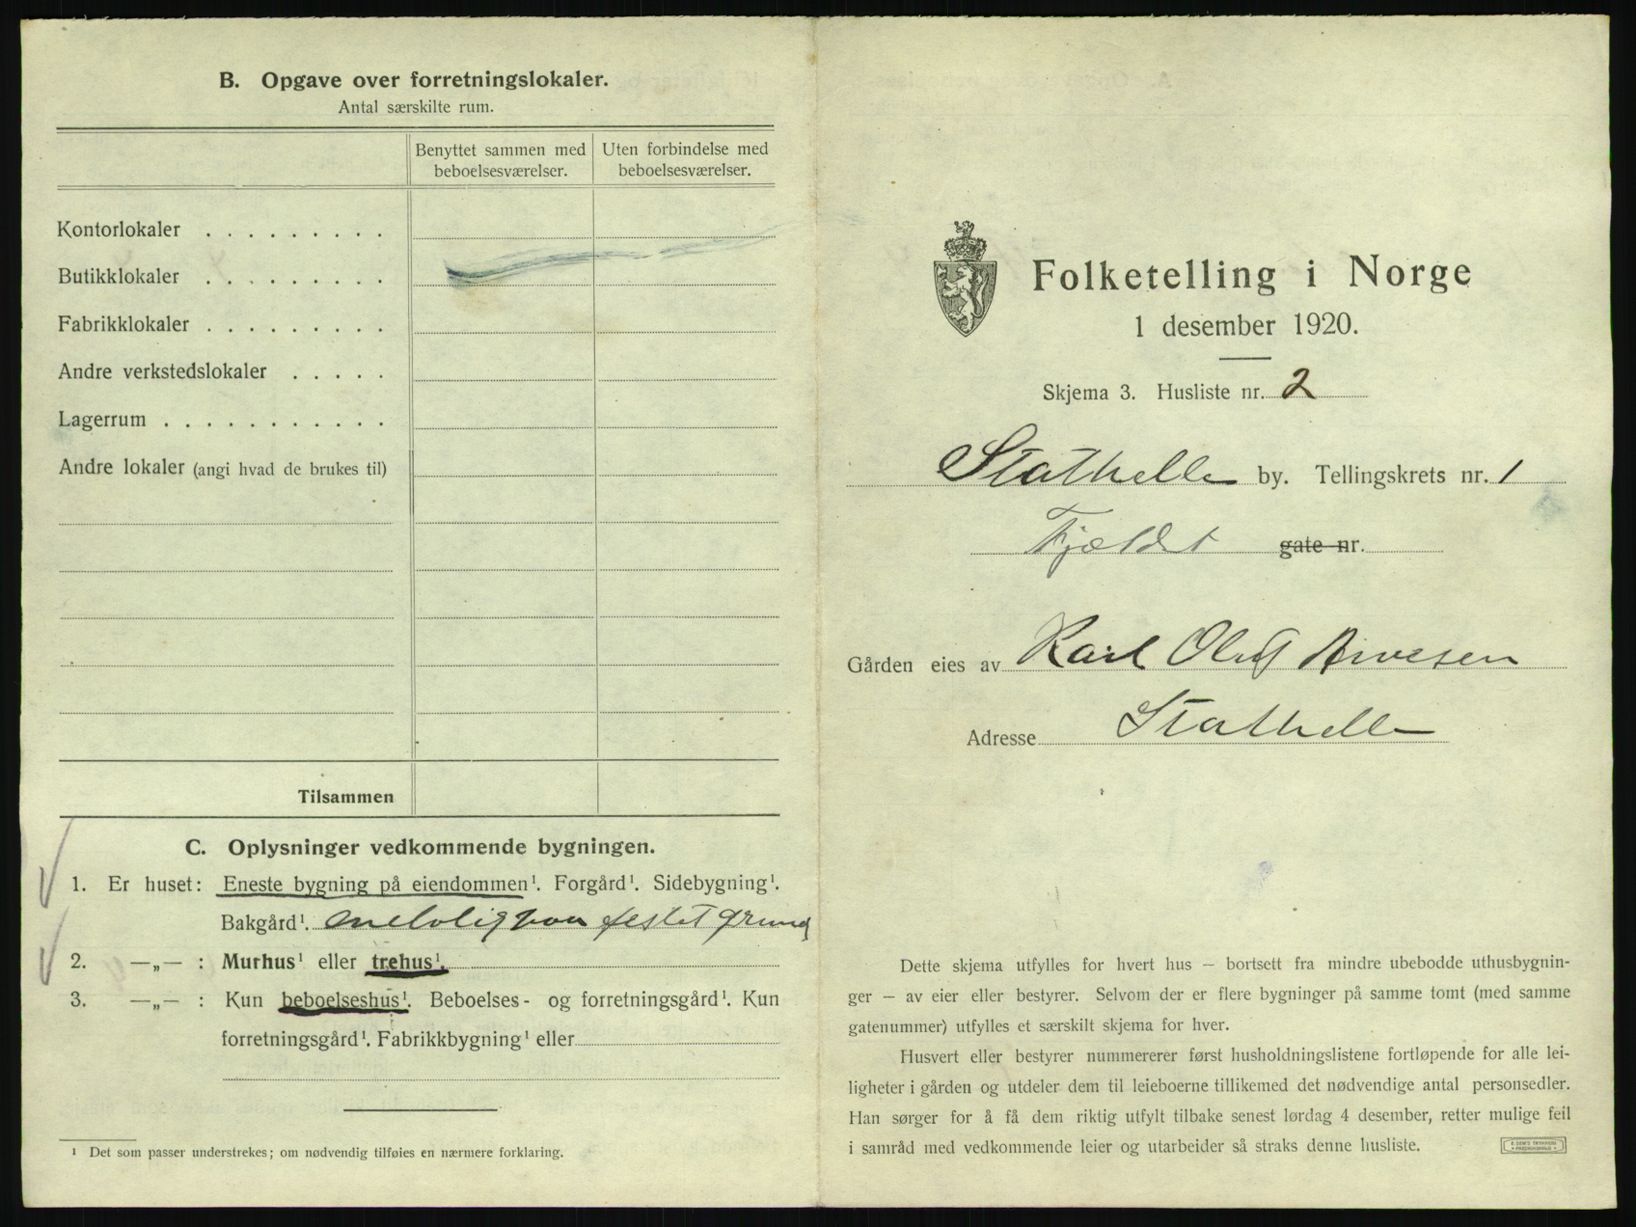 B. Opgave over forretningslokaler.
Antal særskilte rum.
Benyttet sammen med beboelsesværelser.
Uten forbindelse med beboelsesværelser.
Kontorlokaler . . . . . . . . .
Butikklokaler . . . . . . . . .
Fabrikklokaler . . . . . . . . .
Andre verkstedslokaler . . . . .
Lagerrum . . . . . . . . . . .
Andre lokaler (angi hvad de brukes til)
Tilsammen
C. Oplysninger vedkommende bygningen.
1. Er huset: Eneste bygning på eiendommen¹. Forgård¹. Sidebygning¹.
Bakgård¹. paa festet grund
2. —„— : Murhus¹ eller trehus¹.
3. —„— : Kun beboelseshus¹. Beboelses- og forretningsgård¹. Kun
forretningsgård¹. Fabrikkbygning¹ eller
¹ Det som passer understrekes; om nødvendig tilføies en nærmere forklaring.
Folketelling i Norge
1 desember 1920.
Skjema 3. Husliste nr. 2
Stathelle by. Tellingskrets nr. 1
Fjældet gate nr.
Gården eies av Karl Oluf Arvesen
Adresse Stathelle
Dette skjema utfylles for hvert hus – bortsett fra mindre ubebodde uthusbygnin-
ger – av eier eller bestyrer. Selvom der er flere bygninger på samme tomt (med samme
gatenummer) utfylles et særskilt skjema for hver.
Husvert eller bestyrer nummererer først husholdningslistene fortløpende for alle lei-
ligheter i gården og utdeler dem til leieboerne tillikemed det nødvendige antal personsedler.
Han sørger for å få dem riktig utfylt tilbake senest lørdag 4 desember, retter mulige feil
i samråd med vedkommende leier og utarbeider så straks denne husliste.